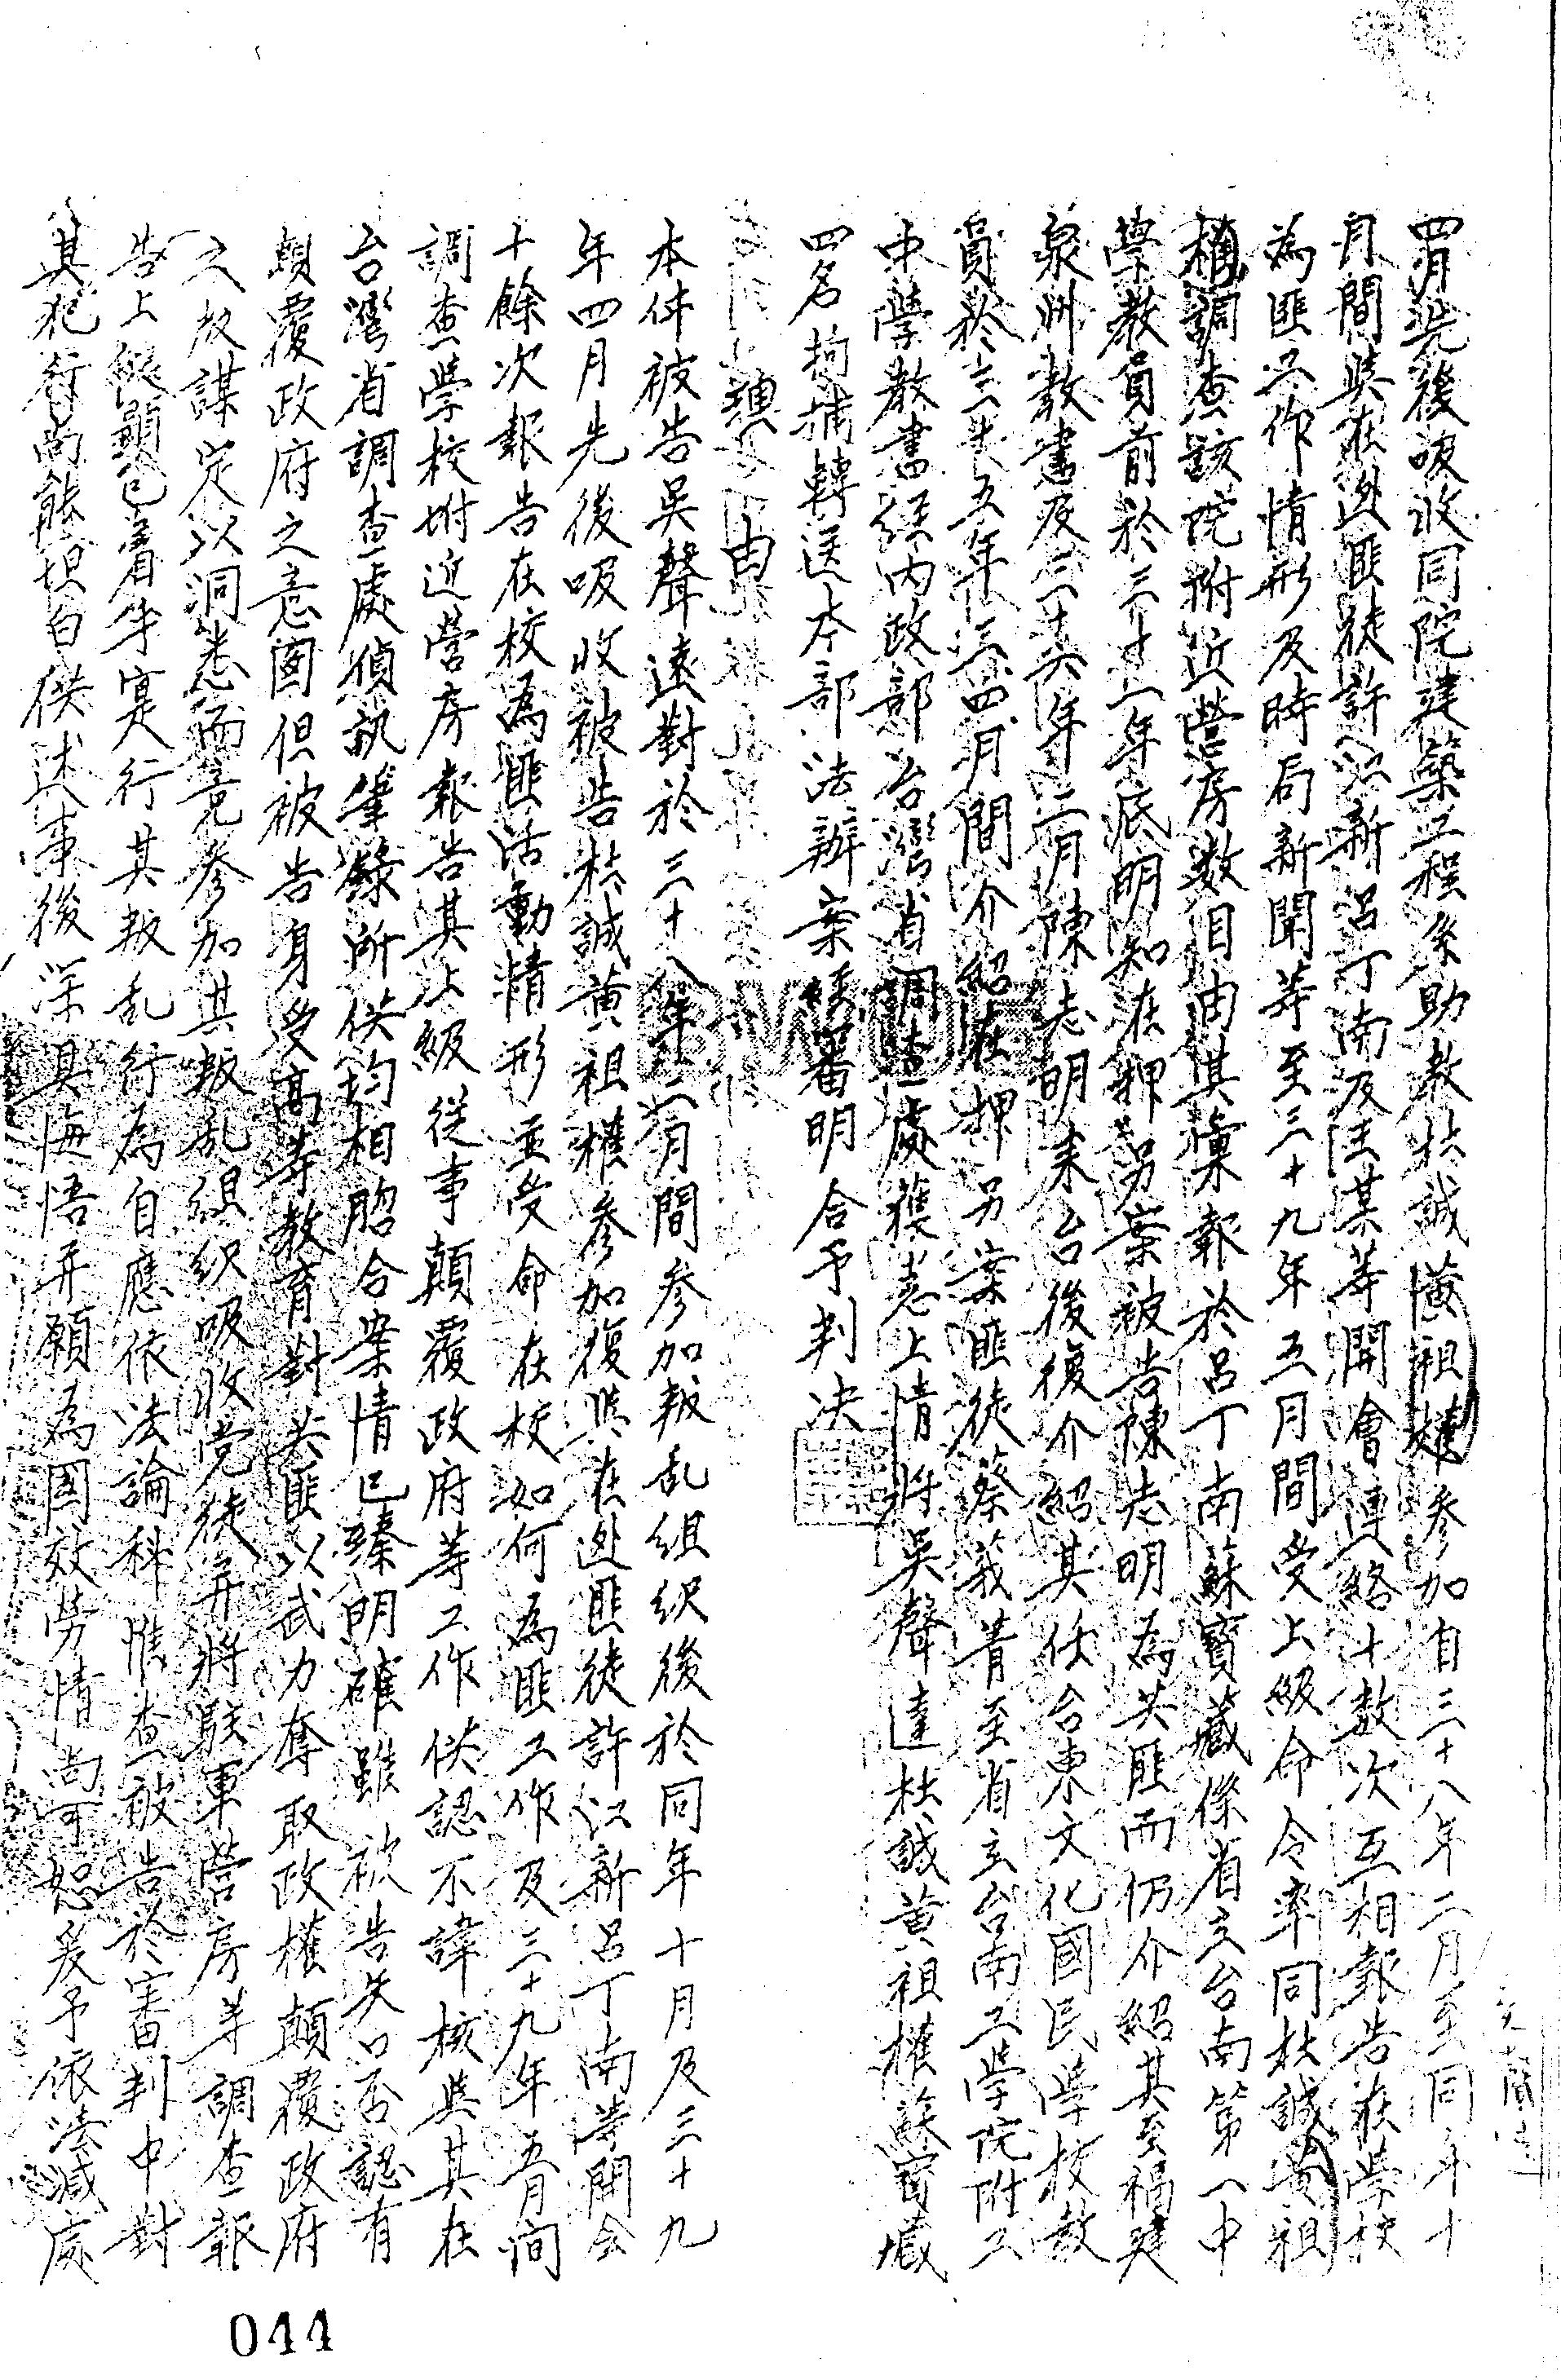 四月先後吸收同院建築工程系助教杜誠黃祖權參加自三十八年二月至同年十
月間與在逃匪徒許江新呂丁南及王某等開會連絡十數次互相報告在學校
為匪工作情形及時局新聞等至三十九年五月間受上級命令率同杜誠黃祖
權調查該院附近營房数目由其彙報於呂丁南蘇寶藏係省立台南第一中
學教員前於三十一年底明知在押另案被告陳志明為共匪而仍介紹其至福建
泉州教書及三十六年二月陳志明來台後復介紹其任台東文化國民學校教
員於三十五年三四月間介紹在押另案匪徒蔡莪菁至省立台南工學院附工
中學教書經內政部台灣省調查處獲悉上情將吳聲達杜誠黃祖權蘇寶藏
四名拘捕轉送本部法辦案經審明合予判决
理由
本件被告吳聲達對於三十八年二月間參加叛乱組织後於同年十月及三十九
年四月先後吸收被告杜誠黃祖權參加復與在逃匪徒許江新呂丁南等開会
十餘次報告在校為匪活動情形並受命在校如何為匪工作及三十九年五月间
調查學校附近營房報告其上級從事顛覆政府等工作供認不諱核與其在
台灣省調查處偵訊筆錄所供均相脗合案情已臻明確雖被告矢口否認有
顛覆政府之意圖但被告身受高等教育對共匪以武力奪取政權顛覆政府
之叛謀定以洞悉而竟參加其叛乱組织吸收党徒并將駐軍營房等調查報
告上級顯已着手实行其叛乱行為自應依法論科惟查被告於審判中對
其犯行尚能坦白供述事後深具悔悟并願為國效勞情尚可恕爰予依法減處
044